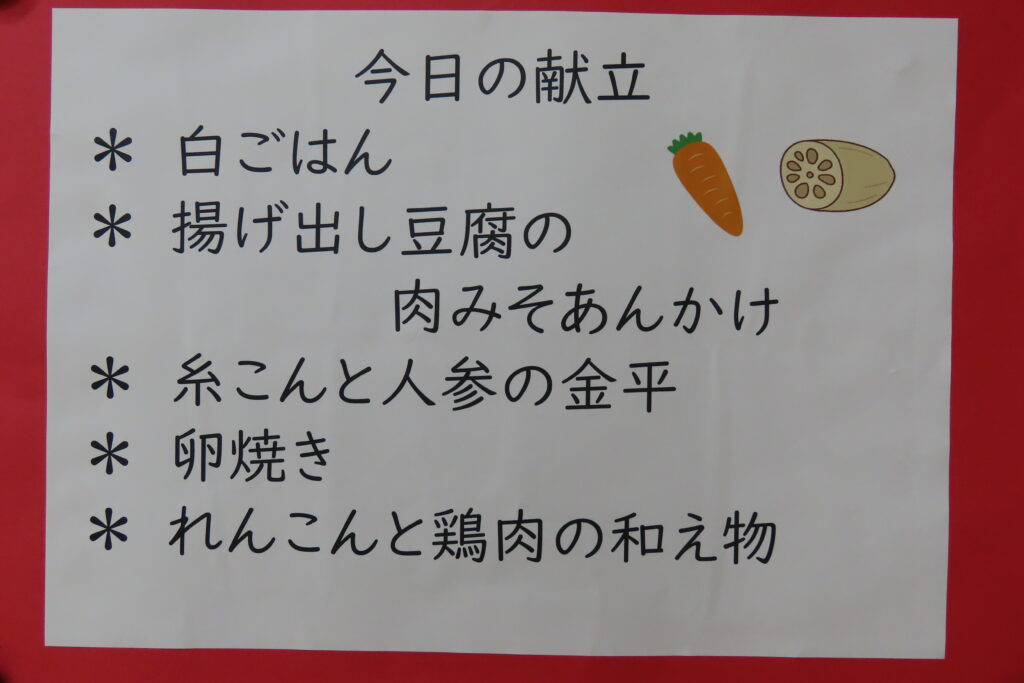 今日の献立
＊ 白ごはん
＊ 揚げ出し豆腐の
肉みそあんかけ
＊ 糸こんと人参の金平
＊ 卵焼き
＊ れんこんと鶏肉の和え物